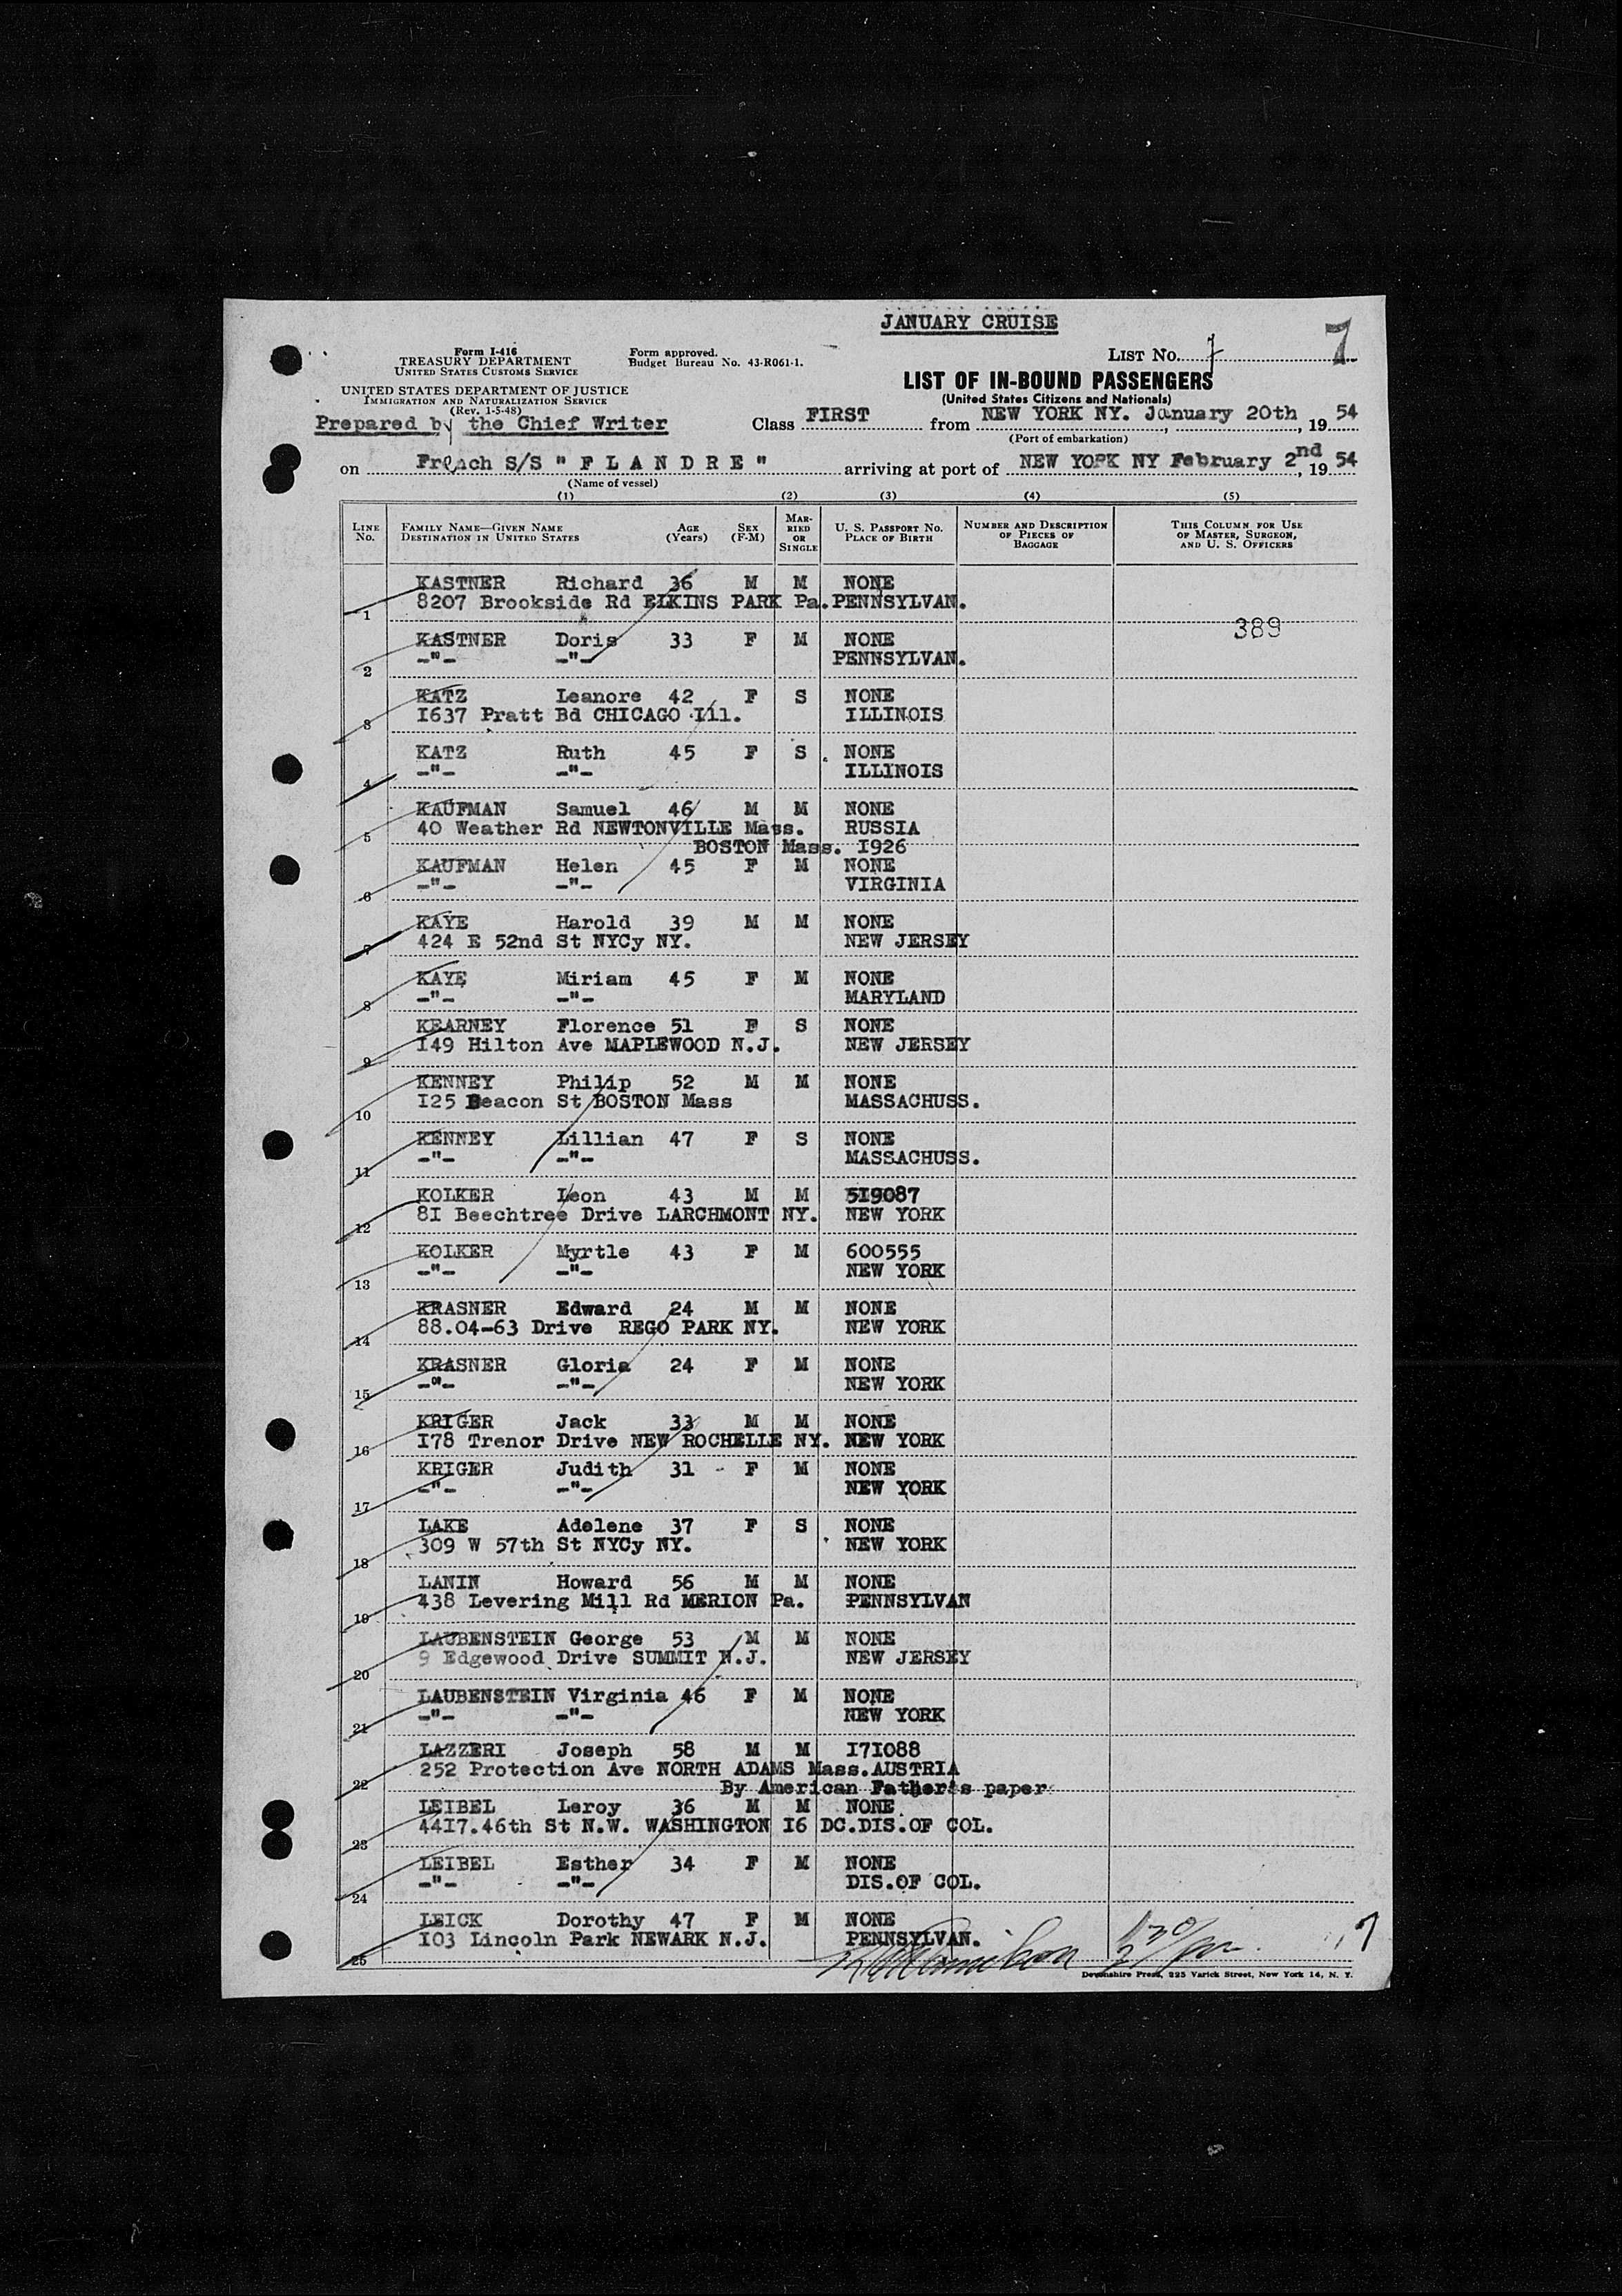 JANUARY CRUISE
Form I-416
TREASURY DEPARTMENT
UNITED STATES CUSTOMS SERVICE
Form approved.
Budget Bureau No. 43-R061-1.
LIST No. 7
7
UNITED STATES DEPARTMENT OF JUSTICE
IMMIGRATION AND NATURALIZATION SERVICE
(Rev. 1-5-48)
LIST OF IN-BOUND PASSENGERS
(United States Citizens and Nationals)
Prepared by the Chief Writer
Class FIRST from NEW YORK NY. January 20th, 19 54
(Port of embarkation)
on French S/S " F L A N D R E " arriving at port of NEW YORK NY February 2nd, 19 54
(Name of vessel)
(1) (2) (3) (4) (5)
LINE No. FAMILY NAME—GIVEN NAME DESTINATION IN UNITED STATES AGE (Years) SEX (F-M) MARRIED OR SINGLE U. S. PASSPORT No. PLACE OF BIRTH NUMBER AND DESCRIPTION OF PIECES OF BAGGAGE THIS COLUMN FOR USE OF MASTER, SURGEON, AND U. S. OFFICERS
KASTNER Richard 36 M M NONE
1 8207 Brookside Rd ELKINS PARK Pa. PENNSYLVAN.
389
KASTNER Doris 33 F M NONE
2 -"- -"- PENNSYLVAN.
KATZ Leanore 42 F S NONE
3 I637 Pratt Bd CHICAGO Ill. ILLINOIS
KATZ Ruth 45 F S NONE
4 -"- -"- ILLINOIS
KAUFMAN Samuel 46 M M NONE
5 40 Weather Rd NEWTONVILLE Mass. RUSSIA
BOSTON Mass. I926
KAUFMAN Helen 45 F M NONE
6 -"- -"- VIRGINIA
KAYE Harold 39 M M NONE
7 424 E 52nd St NYCy NY. NEW JERSEY
KAYE Miriam 45 F M NONE
8 -"- -"- MARYLAND
KEARNEY Florence 51 F S NONE
9 I49 Hilton Ave MAPLEWOOD N.J. NEW JERSEY
KENNEY Philip 52 M M NONE
10 I25 Beacon St BOSTON Mass MASSACHUSS.
KENNEY Lillian 47 F S NONE
11 -"- -"- MASSACHUSS.
KOLKER Leon 43 M M 5I9087
12 8I Beechtree Drive LARCHMONT NY. NEW YORK
KOLKER Myrtle 43 F M 600555
13 -"- -"- NEW YORK
KRASNER Edward 24 M M NONE
14 88.04-63 Drive REGO PARK NY. NEW YORK
KRASNER Gloria 24 F M NONE
15 -"- -"- NEW YORK
KRIGER Jack 33 M M NONE
16 I78 Trenor Drive NEW ROCHELLE NY. NEW YORK
KRIGER Judith 31 - F M NONE
17 -"- -"- NEW YORK
LAKE Adelene 37 F S NONE
18 309 W 57th St NYCy NY. NEW YORK
LANIN Howard 56 M M NONE
19 438 Levering Mill Rd MERION Pa. PENNSYLVAN
LAUBENSTEIN George 53 M M NONE
20 9 Edgewood Drive SUMMIT N.J. NEW JERSEY
LAUBENSTEIN Virginia 46 F M NONE
21 -"- -"- NEW YORK
LAZZERI Joseph 58 M M I7I088
22 252 Protection Ave NORTH ADAMS Mass. AUSTRIA
By American Father's paper
LEIBEL Leroy 36 M M NONE
23 44I7.46th St N.W. WASHINGTON I6 DC. DIS.OF COL.
LEIBEL Esther 34 F M NONE
24 -"- -"- DIS.OF COL.
LEICK Dorothy 47 F M NONE
25 I03 Lincoln Park NEWARK N.J. PENNSYLVAN.
7
Devonshire Press, 225 Varick Street, New York 14, N. Y.